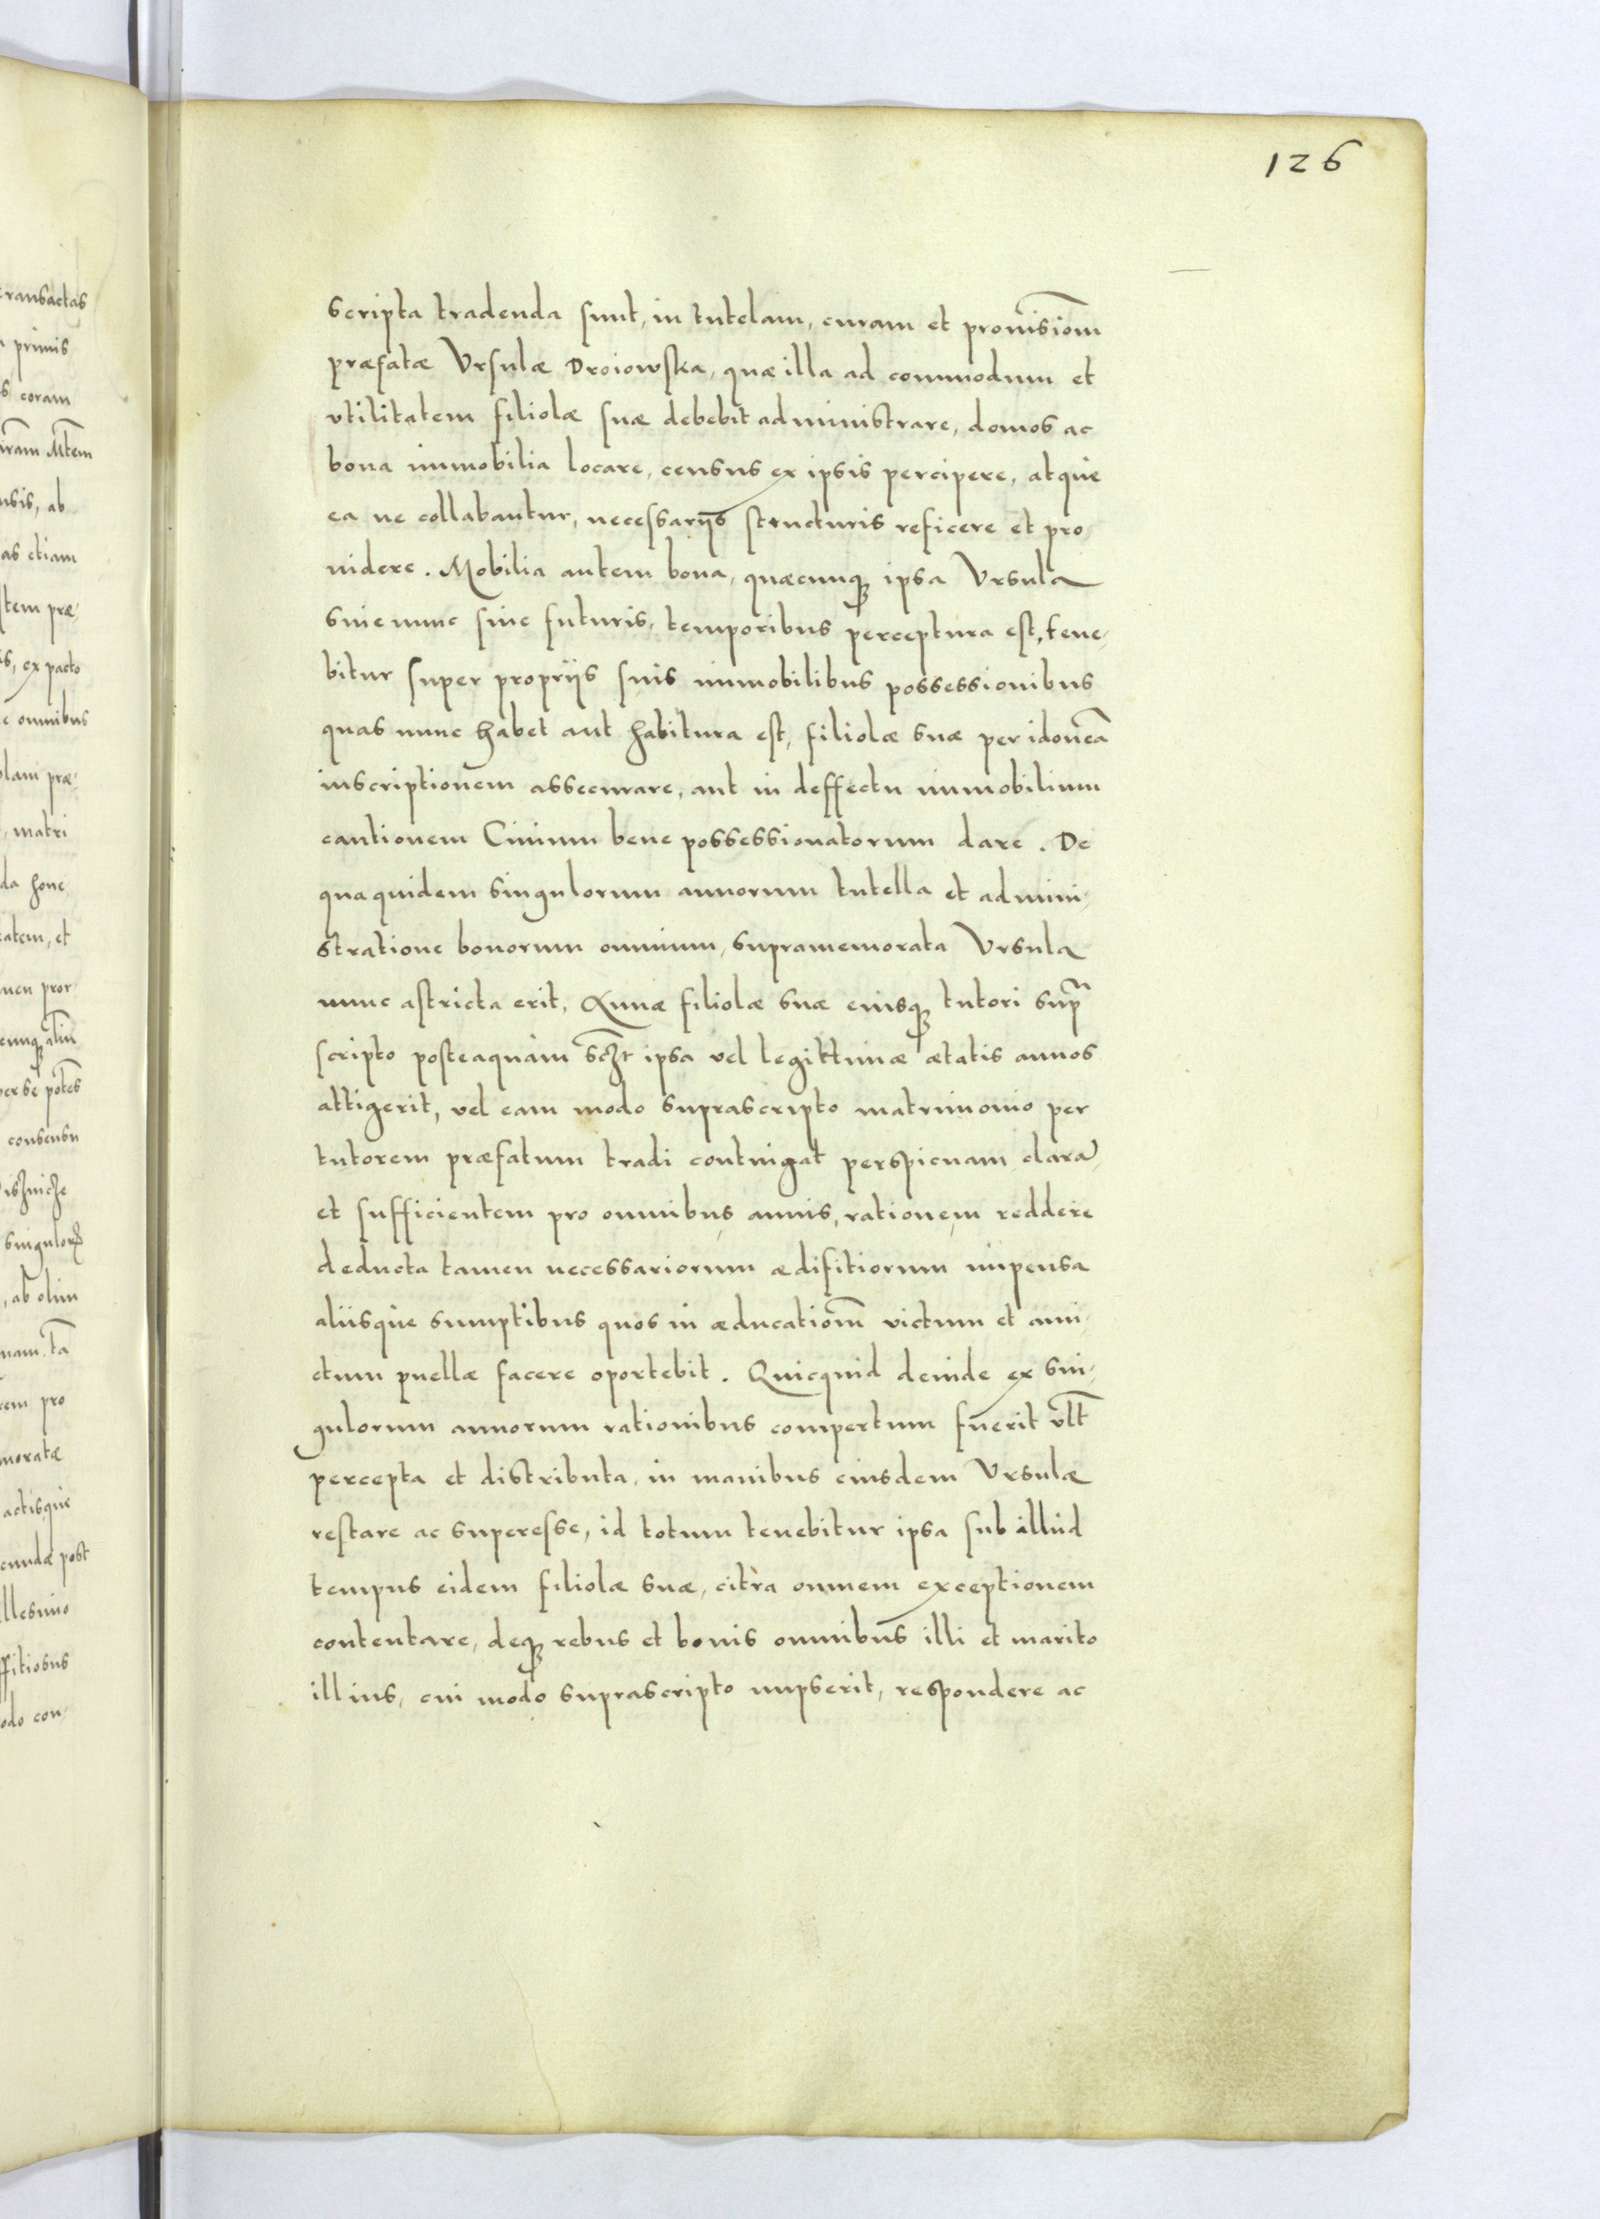 126
scripta tradenda sunt, in tutelam, curam et prouisiom̃
præfatæ Vrsulæ Droiowska, quæ illa ad commodum et
vtilitatem filiolæ suæ debebit administrare, domos ac
bona immobilia locare, census ex ipsis percipere, atque
ea ne collabantur, necessarijs structuris reficere et pro,
uidere. Mobilia autem bona, quæcunq; ipsa Vrsula
siue nunc siue futuris, temporibus perceptura est, tene,
bitur super proprijs suis immobilibus possessionibus
quas nunc habet aut habitura est, filiolæ suæ per idoneã
inscriptionem assecurare, aut in deffectu immobilium
cautionem Ciuium bene possessionatorum dare. De
qua quidem singulorum annorum tutella et admini,
stratione bonorum omnium, supramemorata Vrsula
nunc astricta erit, Annæ filiolæ suæ eiusq; tutori supra
scripto posteaquam ipsa vel legittimæ ætatis annos
attigerit, vel eam modo suprascripto matrimonio per
tutorem præfatum tradi contingat perspicuam clarã,
et sufficientem pro omnibus annis, rationem reddere
deducta tamen necessariorum ædifitiorum impensa
aliisque sumptibus quos in æducatiom̃ victum et ami,
ctum puellæ facere oportebit. Quicquid deinde ex sin,
gulorum annorum rationibus compertum fuerit vltͣ
percepta et distributa, in manibus eiusdem Vrsulæ
restare ac superesse, id totum tenebitur ipsa sub illud
tempus eidem filiolæ suæ, citra omnem exceptionem
contentare, deq; rebus et bonis omnibus illi et marito
illius, cui modo suprascripto nupserit, respondere ac